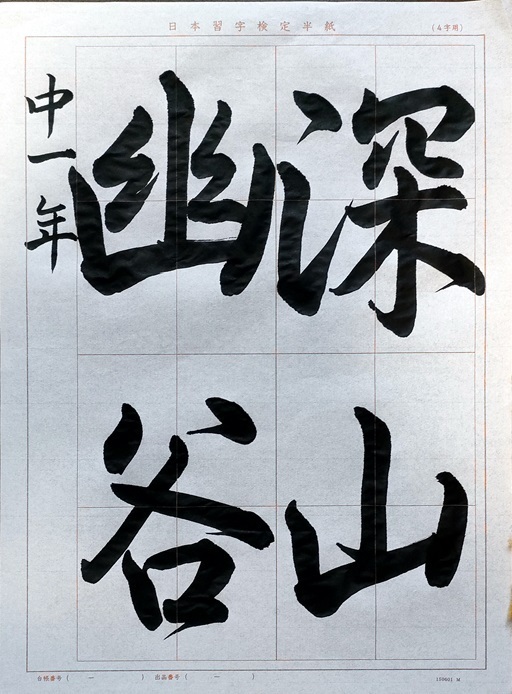 日本習字検定半紙
(4字用)
深山
幽谷
中一年
台帳番号(　ー　)　出品番号(　ー　)
150601 M